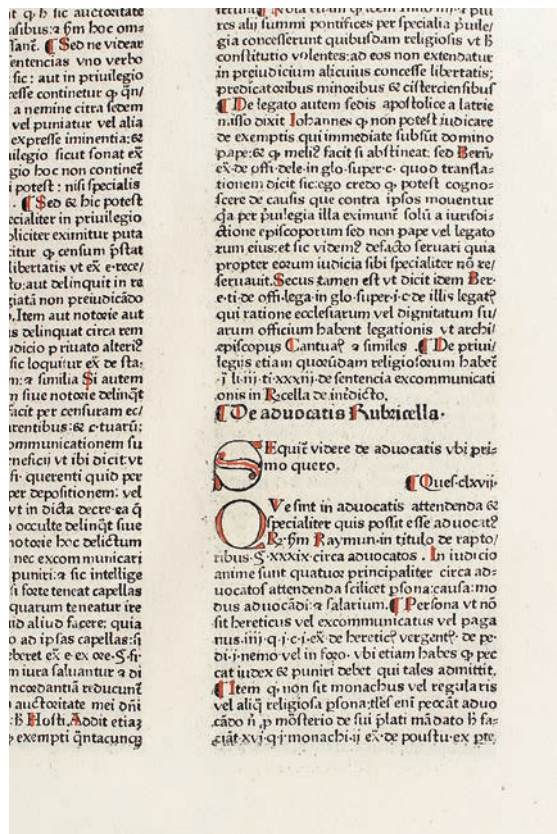 t ꝙ h̄ sic auctoritate
asibus: ⁊ s̄m hoc om=
sanc̄. ¶ Sed ne videar
entencias vno verbo
sic: aut in priuilegio
cesse continetur ꝙ q̄n/
a nemine citra sedem
vel puniatur vel alia
expresse iminentia: ⁊
uilegio sicut sonat ex̄
gio hoc non continet̄
i potest: nisi specialis
. ¶ Sed ⁊ hic potest
cialiter in priuilegio
pliciter eximitur puta
citur ꝙ censum p̄stat
libertatis vt ex̄ e·rece/
to: aut delinquit in re
giatā non preiudicādo
. Item aut notorie aut
s delinquat circa rem
udicio priuato alteriꝰ
sic loquitur ex̄ de sta.
m: ⁊ similia Si autem
n siue notorie delinq̄t
facit per censuram ec/
rentibus: ⁊ c·tuarū:
ommunicationem su
neficij vt ibi dicit̄ vt
fi· querenti quid per
per depositionem: vel
vt in dicta decre·ea q̄
occulte delinq̄t siue
notorie hoc delictum
nec excommunicari
puniri: ⁊ sic intellige
si forte teneat capellas
quarum teneatur ire
id aliud facere: quia
o ad ipsas capellas: si
eberet ex̄ e·ex ore·§·fi·
m iura saluantur ⁊ di
ncordantiā reducunt̄
auctoritate mei dn̄i
: h̄ Hosti. Addit etiaꝫ
exempti q̄ntacunqꝫ
res alij summi pontifices per specialia p̄uile/
gia concesserunt quibusdam religiosis vt h̄
constitutio volentes: ad eos non extendatur
in preiudicium alicuius concesse libertatis;
predicatoribus minoribus ⁊ cisterciensibus
¶ De legato autem sedis apostolice a latere
misso dixit Iohannes ꝙ non potest iudicare
de exemptis qui immediate subsūt domino
pape: ⁊ ꝙ meliꝰ facit si abstineat: sed Bern̄
ex̄·de offi·dele·in glo·super·c· quod transla=
tionem dicit sic: ego credo ꝙ potest cogno=
scere de causis que contra ipsos mouentur
q̄a per p̄uilegia illa eximunt̄ solū a iurisdi=
ctione episcoporum sed non pape vel legato
rum eius: et sic videmꝰ defacto seruari quia
propter eorum iudicia sibi specialiter nō re/
seruauit. Secus tamen est vt dicit idem Ber·
e·ti·de offi·lega·in glo·super·j·c·de illis legatꝭ
qui ratione ecclesiarum vel dignitatum su/
arum officium habent legationis vt archi/
episcopus Cantuaꝝ ⁊ similes . ¶ De priui/
legijs etiam quorūdam religiosorum habet̄
· j· li·iij·ti·xxxiij·de sentencia excommunicati
onis in R̄cella de int̄dicto.
¶ De aduocatis Rubricella·
SEquit̄ videre de aduocatis vbi pri=
mo quero.
¶ Ques·clxvij·
QVe sint in aduocatis attendenda ⁊
specialiter quis possit esse aduocatꝰ
R̄· s̄m Raymun·in titulo de rapto/
ribus·§·xxxix·circa aduocatos . In iudicio
anime sunt quatuor principaliter circa ad=
uocatos attendenda scilicet p̄sona: causa: mo
dus aduocādi: ⁊ salarium. ¶ Persona vt nō
sit hereticus vel excommunicatus vel paga
nus·iiij·q·j·c·j·ex̄·de hereticꝭ vergent̄ꝭ· de pe·
di·j·nemo vel in foro· vbi etiam habes ꝙ pec
cat iudex ⁊ puniri debet qui tales admittit.
¶ Item ꝙ non sit monachus vel regularis
vel aliq̄ religiosa p̄sona: tl̄es eni̅ peccāt aduo
cādo n̄ p̱ mōsterio de sui p̄lati mādato h̄ fa=
ciāt·xvj·q·j·monachi·ij ex̄·de poustu·ex p̱te·